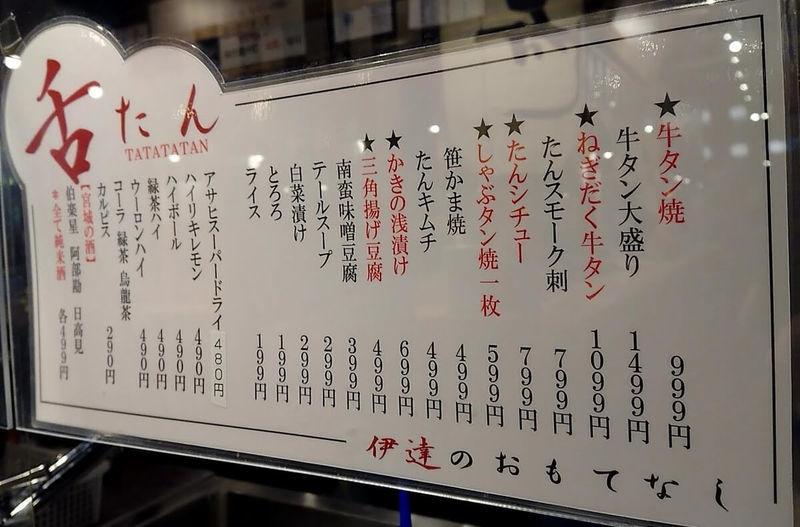 舌たん
TATATATAN
★牛タン焼 999円
牛タン大盛り 1499円
★ねぎだく牛タン 1099円
たんスモーク刺 799円
★たんシチュー 799円
★しゃぶタン焼一枚 599円
笹かま焼 499円
たんキムチ 499円
★かきの浅漬け 699円
★三角揚げ豆腐 499円
南蛮味噌豆腐 399円
テールスープ 299円
白菜漬け 299円
とろろ 199円
ライス 199円
アサヒスーパードライ 480円
ハイリキレモン 490円
ハイボール 490円
緑茶ハイ 490円
ウーロンハイ 490円
コーラ 緑茶 烏龍茶
カルピス 290円
【宮城の酒】
伯楽星 阿部勘 日高見
※全て純米酒 各499円
伊達のおもてなし